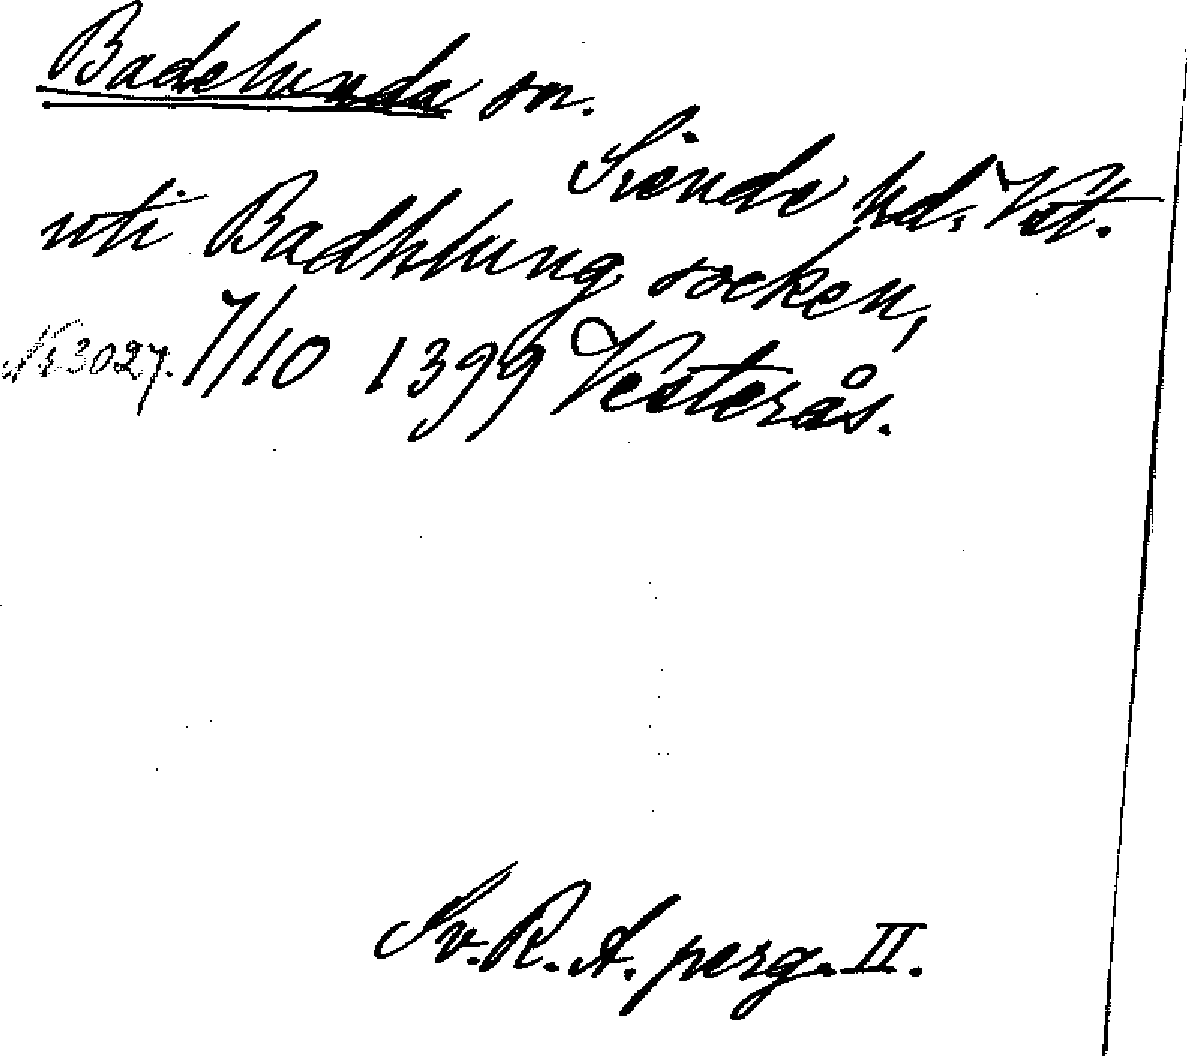 Badelunda sn.
Siende hd. Vst.
uti Badhlung socken,
Nr 3027. 7/10 1399 Vesterås.
Sv. R. A. perg. II.